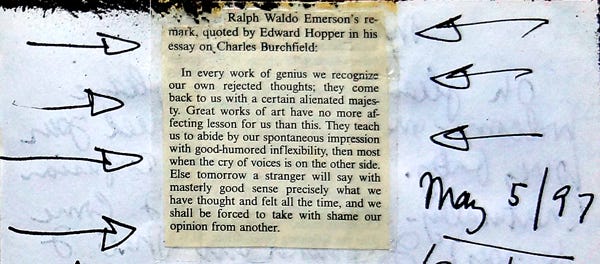 Ralph Waldo Emerson's re-
mark, quoted by Edward Hopper in his
essay on Charles Burchfield:
In every work of genius we recognize
our own rejected thoughts; they come
back to us with a certain alienated majes-
ty. Great works of art have no more af-
fecting lesson for us than this. They teach
us to abide by our spontaneous impression
with good-humored inflexibility, then most
when the cry of voices is on the other side.
Else tomorrow a stranger will say with
masterly good sense precisely what we
have thought and felt all the time, and we
shall be forced to take with shame our
opinion from another.
May 5/97